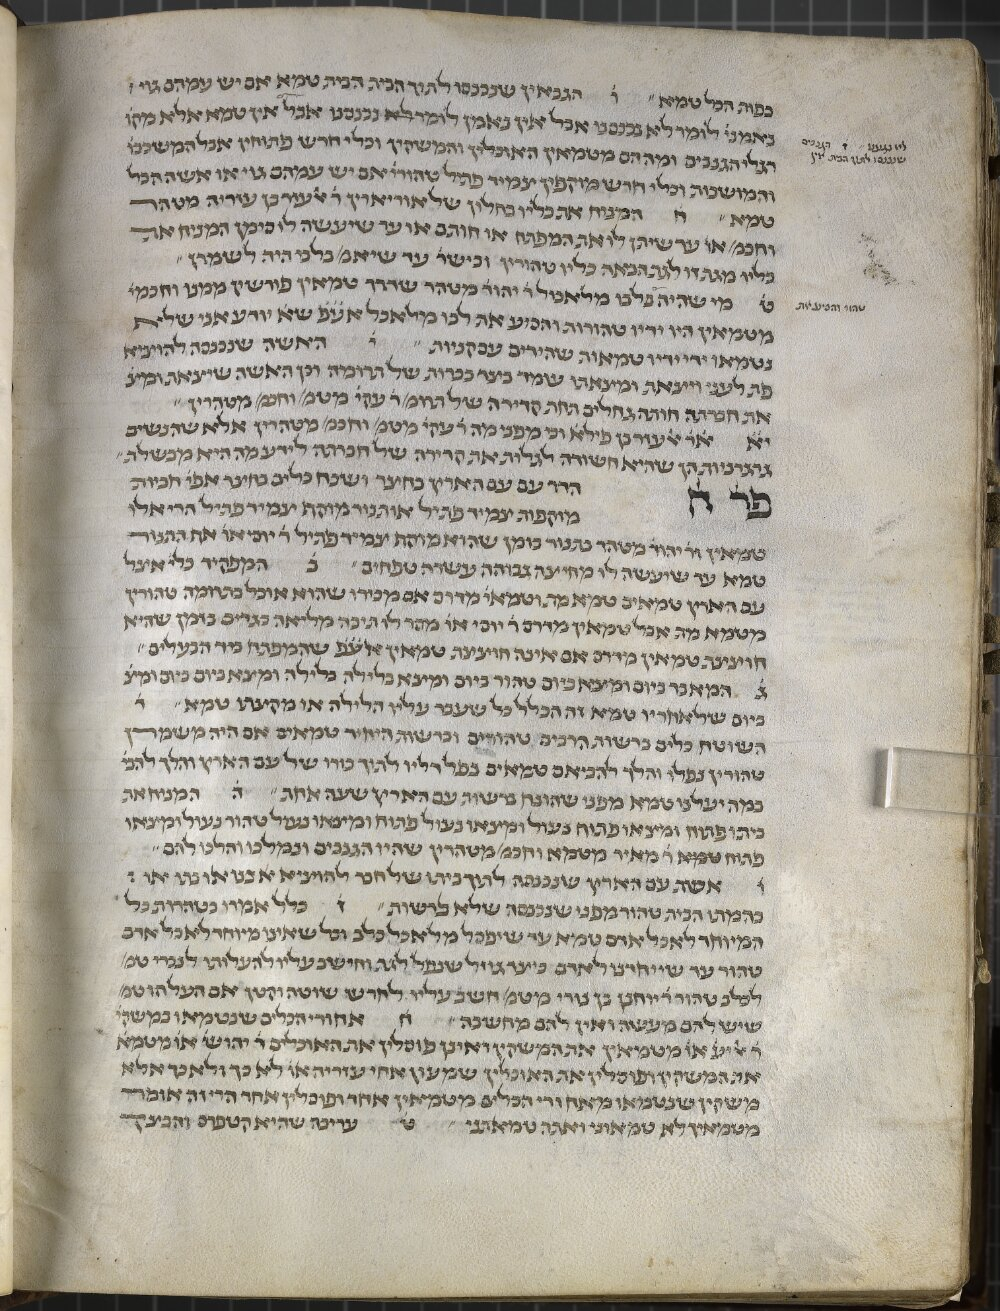 בפוה הכל טמא׳׳ ו̇ הגבאין שנכנסו לתוך הבית הבית טמא אם יש עמהם גוי
נאמני׳ לומר לא נכנסנו אבל אין נאמן לומר לא נכנסנו אבל אין טמא אלא מקו׳
רגלי הגנבים ומה הם מטמאין האוכלין והמשקין וכלי חרש פתוחין אבל המשכבו׳
והמושבות וכלי חרש מוקפין צמיד פתיל טהורי׳ אם יש עמהם גוי או אשה הכל
טמא׳׳ ח̇ המניח את כליו בחלון של אודיארין ר׳ אלעזר בן עזריה מטהר
וחכמ׳ או׳ עד שיתן לו את המפתח או חותם או עד שיעשה לו סימן המניח את
כליו מגת זו לגת הבאה כליו טהורין ובישר׳ עד שיאמ׳ בלבי היה לשמרן׳׳
ט̇ מי שהיה בלבו מלאכול ר׳ יהוד׳ מטהר שדרך טמאין פורשין ממנו וחכמי׳
מטמאין היו ידיו טהורות והסיע את לבו מלאכל אע׳׳פ שא׳ יודע אני שלא
נטמאו ידי ידיו טמאות שהידים עסקניות׳׳ י̇ האשה שנכנסה להוציא
פת לעני ויצאת ומצאתו עומד בצד ככרות של תרומה וכן האשה שיצאת ומצ׳
את חברתה חותה גחלים תחת קדירה של תרומ׳ ר׳ עקי׳ מטמ׳ וחכמ׳ מטהרין׳׳
יא̇ או׳ ר׳ אלעזר בן פילא וכי מפני מה ר׳ עקי׳ מטמ׳ וחכמ׳ מטהרין אלא שהנשים
גרגרניות הן שהיא חשודה לגלות את קדירה של חברתה לידע מה היא מבשלת׳׳
פר ח̇ הדר עם עם הארץ בחצר ושכח כלים בחצר אפי׳ חביות
מוקפות צמיד פתיל או תנור מוקף צמיד פתיל הרי אלו
טמאין ור׳ יהוד׳ מטהר בתנור בזמן שהוא מוקף צמיד פתיל ר׳ יוסי או׳ אף התנור
טמא עד שיעשה לו מחיצה גבוהה עשרה טפחים׳׳ ב̇ המפקיד כלי׳ אצל
עם הארץ טמאים טמא מת וטמאי׳ מדרס אם מכירו שהוא אוכל בתרומה טהורין
מטמא מת אבל טמאין מדרס ר׳ יוסי או׳ מסר לו תיבה מליאה בגדים בזמן שהיא
חוצצת טמאין מדרס אם אינה חוצצת טמאין אע׳׳פ שהמפתח ביד הבעלים׳׳
ג̇ המאבד ביום ומצא ביום טהור ביום ומצא בלילה בלילה ומצא ביום ביום ומצ׳
ביום שלאחריו טמא זה הכלל כל שעבר עליו הלילה או מקצתו טמא׳׳ ד̇
השוטח כלים ברשות הרבים טהורים וברשות היחיד טמאים אם היה משמרן
טהורין נפלו והלך להביאם טמאים נפל דליו לתוך בורו של עם הארץ והלך להבי׳
במה יעלנו טמא מפני שהונח ברשות עם הארץ שעה אחת׳׳ ה̇ המניח את
ביתו פתוח ומצאו פתוח נעול ומצאו נעול פתוח ומצאו נעול טהור נעול ומצאו
פתוח טמא ר׳ מאיר מטמא וחכמ׳ מטהרין שהיו הגנבים ונמלכו והלכו להם׳׳
ו̇ אשת עם הארץ שנכנסה לתוך ביתו של חבר להוציא בנו או בתו או
בהמתו הבית טהור מפני שנכנסה שלא ברשות׳׳ ז̇ כלל אמרו בטהרות כל
המיוחד לאכל אדם טמא עד שיפסל מלאכל כלב וכל שאינו מיוחד לאכל אדם
טהור עד שייחדנו לאדם כיצד גוזל שנפל לגת וחישב עליו להעלותו לנכרי טמ׳
לכלב טהור ר׳ יוחנן בן נורי מטמ׳ חשב עליו לחרש שוטה וקטן אם העלהו טמ׳
שיש להם מעשה ואין להם מחשבה׳׳ ח̇ אחורי הכלים שנטמאו במשקי׳
ר׳ אליע׳ או׳ מטמאין את המשקין ואינן פוסלין את האוכלים ר׳ יהושע או׳ מטמא׳
את המשקין ופוסלין את האוכלין שמעון אחי עזריה או׳ לא כך ולא כך אלא
משקין שנטמאו מאחורי הכלים מטמאין אחד ופוסלין אחד הרי זה אומר
מטמאיך לא טמאוני ואתה טמאתני׳׳ ט̇ עריבה שהיא קטפרס והבצק
לא נכנסנו׳׳ ז̇ הגנבים
שנכנסו לתוך הבית אין
טהור והפיעיות